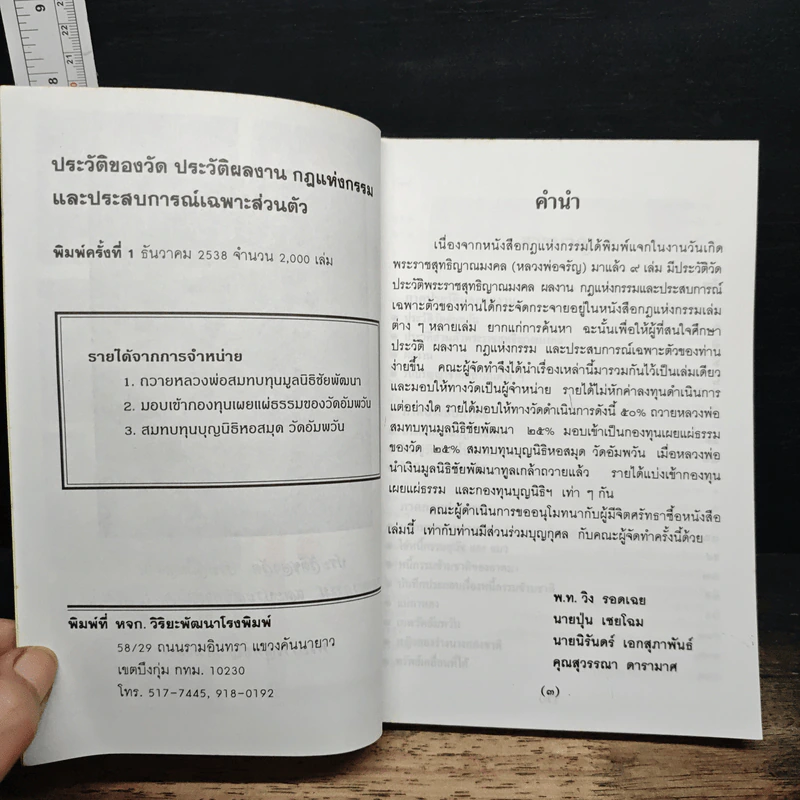 9
8
22
21
20
ประวัติของวัด ประวัติผลงาน กฎแห่งกรรม
และประสบการณ์เฉพาะส่วนตัว
พิมพ์ครั้งที่ 1 ธันวาคม 2538 จำนวน 2,000 เล่ม
รายได้จากการจำหน่าย
1. ถวายหลวงพ่อสมทบทุนมูลนิธิชัยพัฒนา
2. มอบเข้ากองทุนเผยแผ่ธรรมของวัดอัมพวัน
3. สมทบทุนบุญนิธิหอสมุด วัดอัมพวัน
พิมพ์ที่ หจก. วิริยะพัฒนาโรงพิมพ์
58/29 ถนนรามอินทรา แขวงคันนายาว
เขตบึงกุ่ม กทม. 10230
โทร. 517-7445, 918-0192
คำนำ
เนื่องจากหนังสือกฎแห่งกรรมได้พิมพ์แจกในงานวันเกิด
พระราชสุทธิญาณมงคล (หลวงพ่อจรัญ) มาแล้ว ๙ เล่ม มีประวัติวัด
ประวัติพระราชสุทธิญาณมงคล ผลงาน กฎแห่งกรรมและประสบการณ์
เฉพาะตัวของท่านได้กระจัดกระจายอยู่ในหนังสือกฎแห่งกรรมเล่ม
ต่าง ๆ หลายเล่ม ยากแก่การค้นหา ฉะนั้นเพื่อให้ผู้ที่สนใจศึกษา
ประวัติ ผลงาน กฎแห่งกรรม และประสบการณ์เฉพาะตัวของท่าน
ง่ายขึ้น คณะผู้จัดทำจึงได้นำเรื่องเหล่านี้มารวมกันไว้เป็นเล่มเดียว
และมอบให้ทางวัดเป็นผู้จำหน่าย รายได้ไม่หักค่าลงทุนดำเนินการ
แต่อย่างใด รายได้มอบให้ทางวัดดำเนินการดังนี้ ๕๐% ถวายหลวงพ่อ
สมทบทุนมูลนิธิชัยพัฒนา ๒๕% มอบเข้าเป็นกองทุนเผยแผ่ธรรม
ของวัด ๒๕% สมทบทุนบุญนิธิหอสมุด วัดอัมพวัน เมื่อหลวงพ่อ
นำเงินมูลนิธิชัยพัฒนาทูลเกล้าถวายแล้ว รายได้แบ่งเข้ากองทุน
เผยแผ่ธรรม และกองทุนบุญนิธิฯ เท่า ๆ กัน
คณะผู้ดำเนินการขออนุโมทนากับผู้มีจิตศรัทธาซื้อหนังสือ
เล่มนี้ เท่ากับท่านมีส่วนร่วมบุญกุศล กับคณะผู้จัดทำครั้งนี้ด้วย
พ.ท. วิง รอดเฉย
นายปุ่น เชยโฉม
นายนิรันดร์ เอกสุภาพันธ์
คุณสุวรรณา ดารามาศ
(๓)